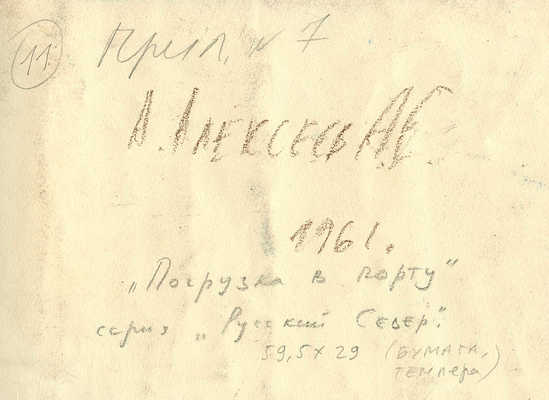 11
N 7
А. Алексеев
1961.
„Погрузка в порту"
серия „Русский Север".
59,5 x 29 (БУМАГА,
ТЕМПЕРА)